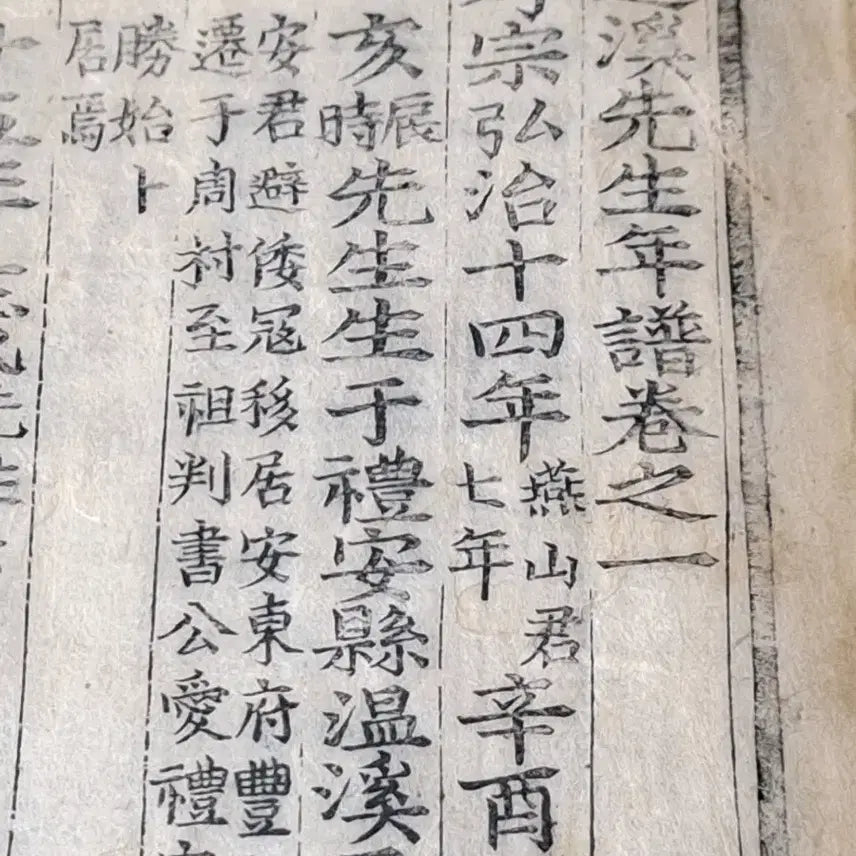 溪先生年譜卷之一
宗弘治十四年
燕山君
七年
辛酉
亥
辰
時
先生生于禮安縣温溪
安君避倭寇移居安東府豐
遷于周村至祖判書公愛禮
勝始卜
居焉